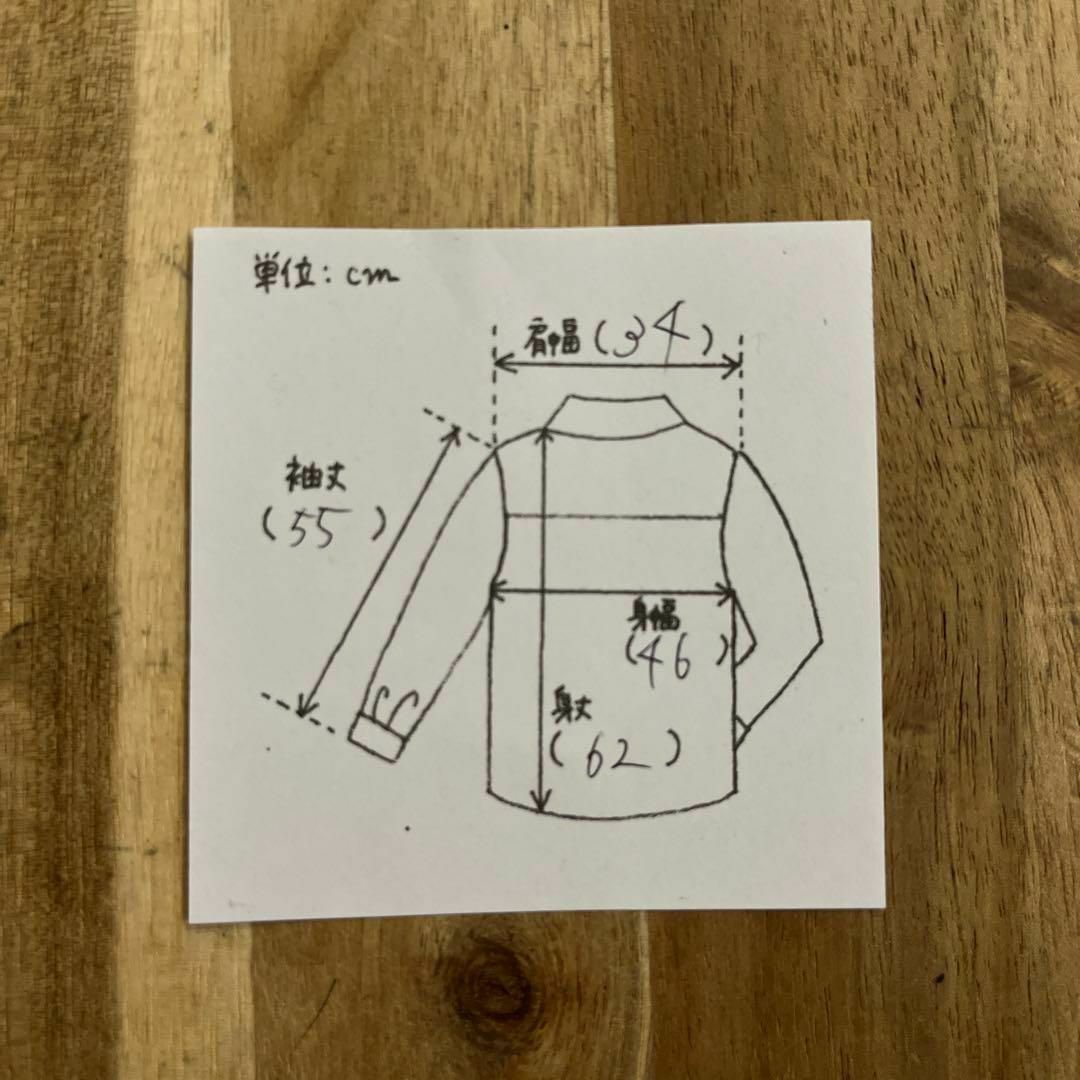 単位：cm
肩幅(34)
袖丈
(55)
身幅
(46)
身丈
(62)